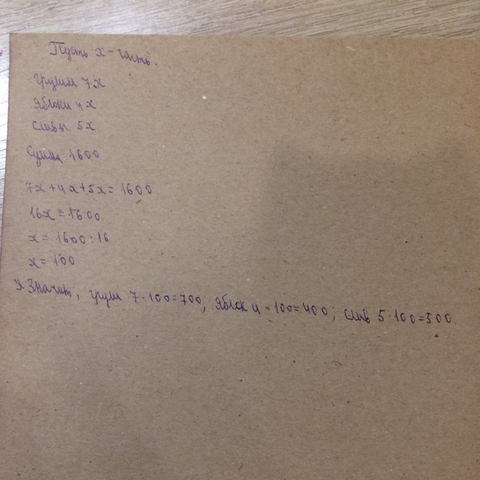 Пусть x - часть.
Груши 7x
Яблоки 4x
Сливы 5x
Сумма 1600
7x+4x+5x=1600
16x=1600
x=1600:16
x=100
Значит, груш 7·100=700, яблок 4·100=400; слив 5·100=500.